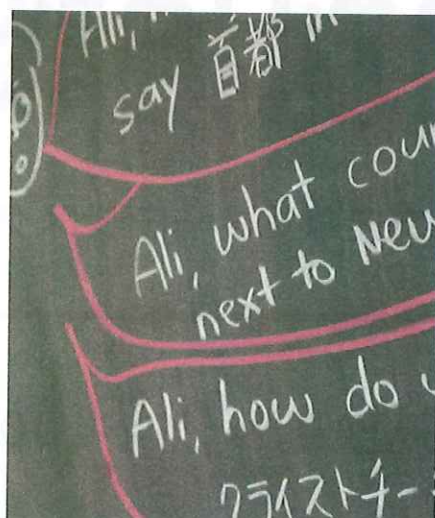 Ali,
say 首都 in
Ali, what
next to New
Ali, how do
クライストチー